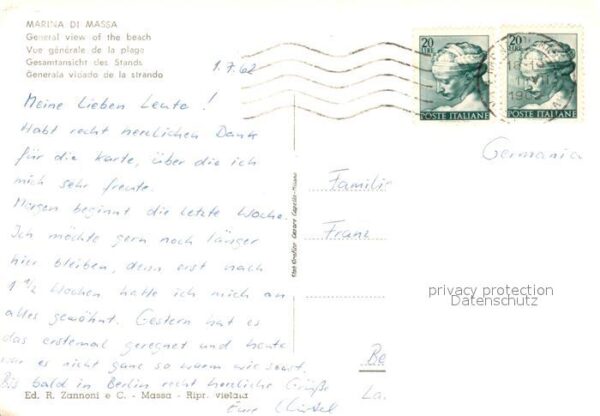 MARINA DI MASSA
General view of the beach
Vue générale de la plage
Gesamtansicht des Stands
Generala vidado de la strando
1.7.62
Meine Lieben Leute!
Habt recht herzlichen Dank
für die Karte, über die ich
mich sehr freute.
Morgen beginnt die letzte Woche.
Ich möchte gern noch länger
hier bleiben, denn erst nach
1 1/2 Wochen hatte ich mich an
alles gewöhnt. Gestern hat es
das erstemal geregnet und heute
war es nicht ganz so warm wie sonst.
Bis bald in Berlin recht herzliche Grüße
Eure
Ed. R. Zannoni e C. - Massa - Ripr. vietata
20 LIRE
POSTE ITALIANE
20 LIRE
POSTE ITALIANE
Germania
Familie
Franz
privacy protection
Datenschutz
Be
La.